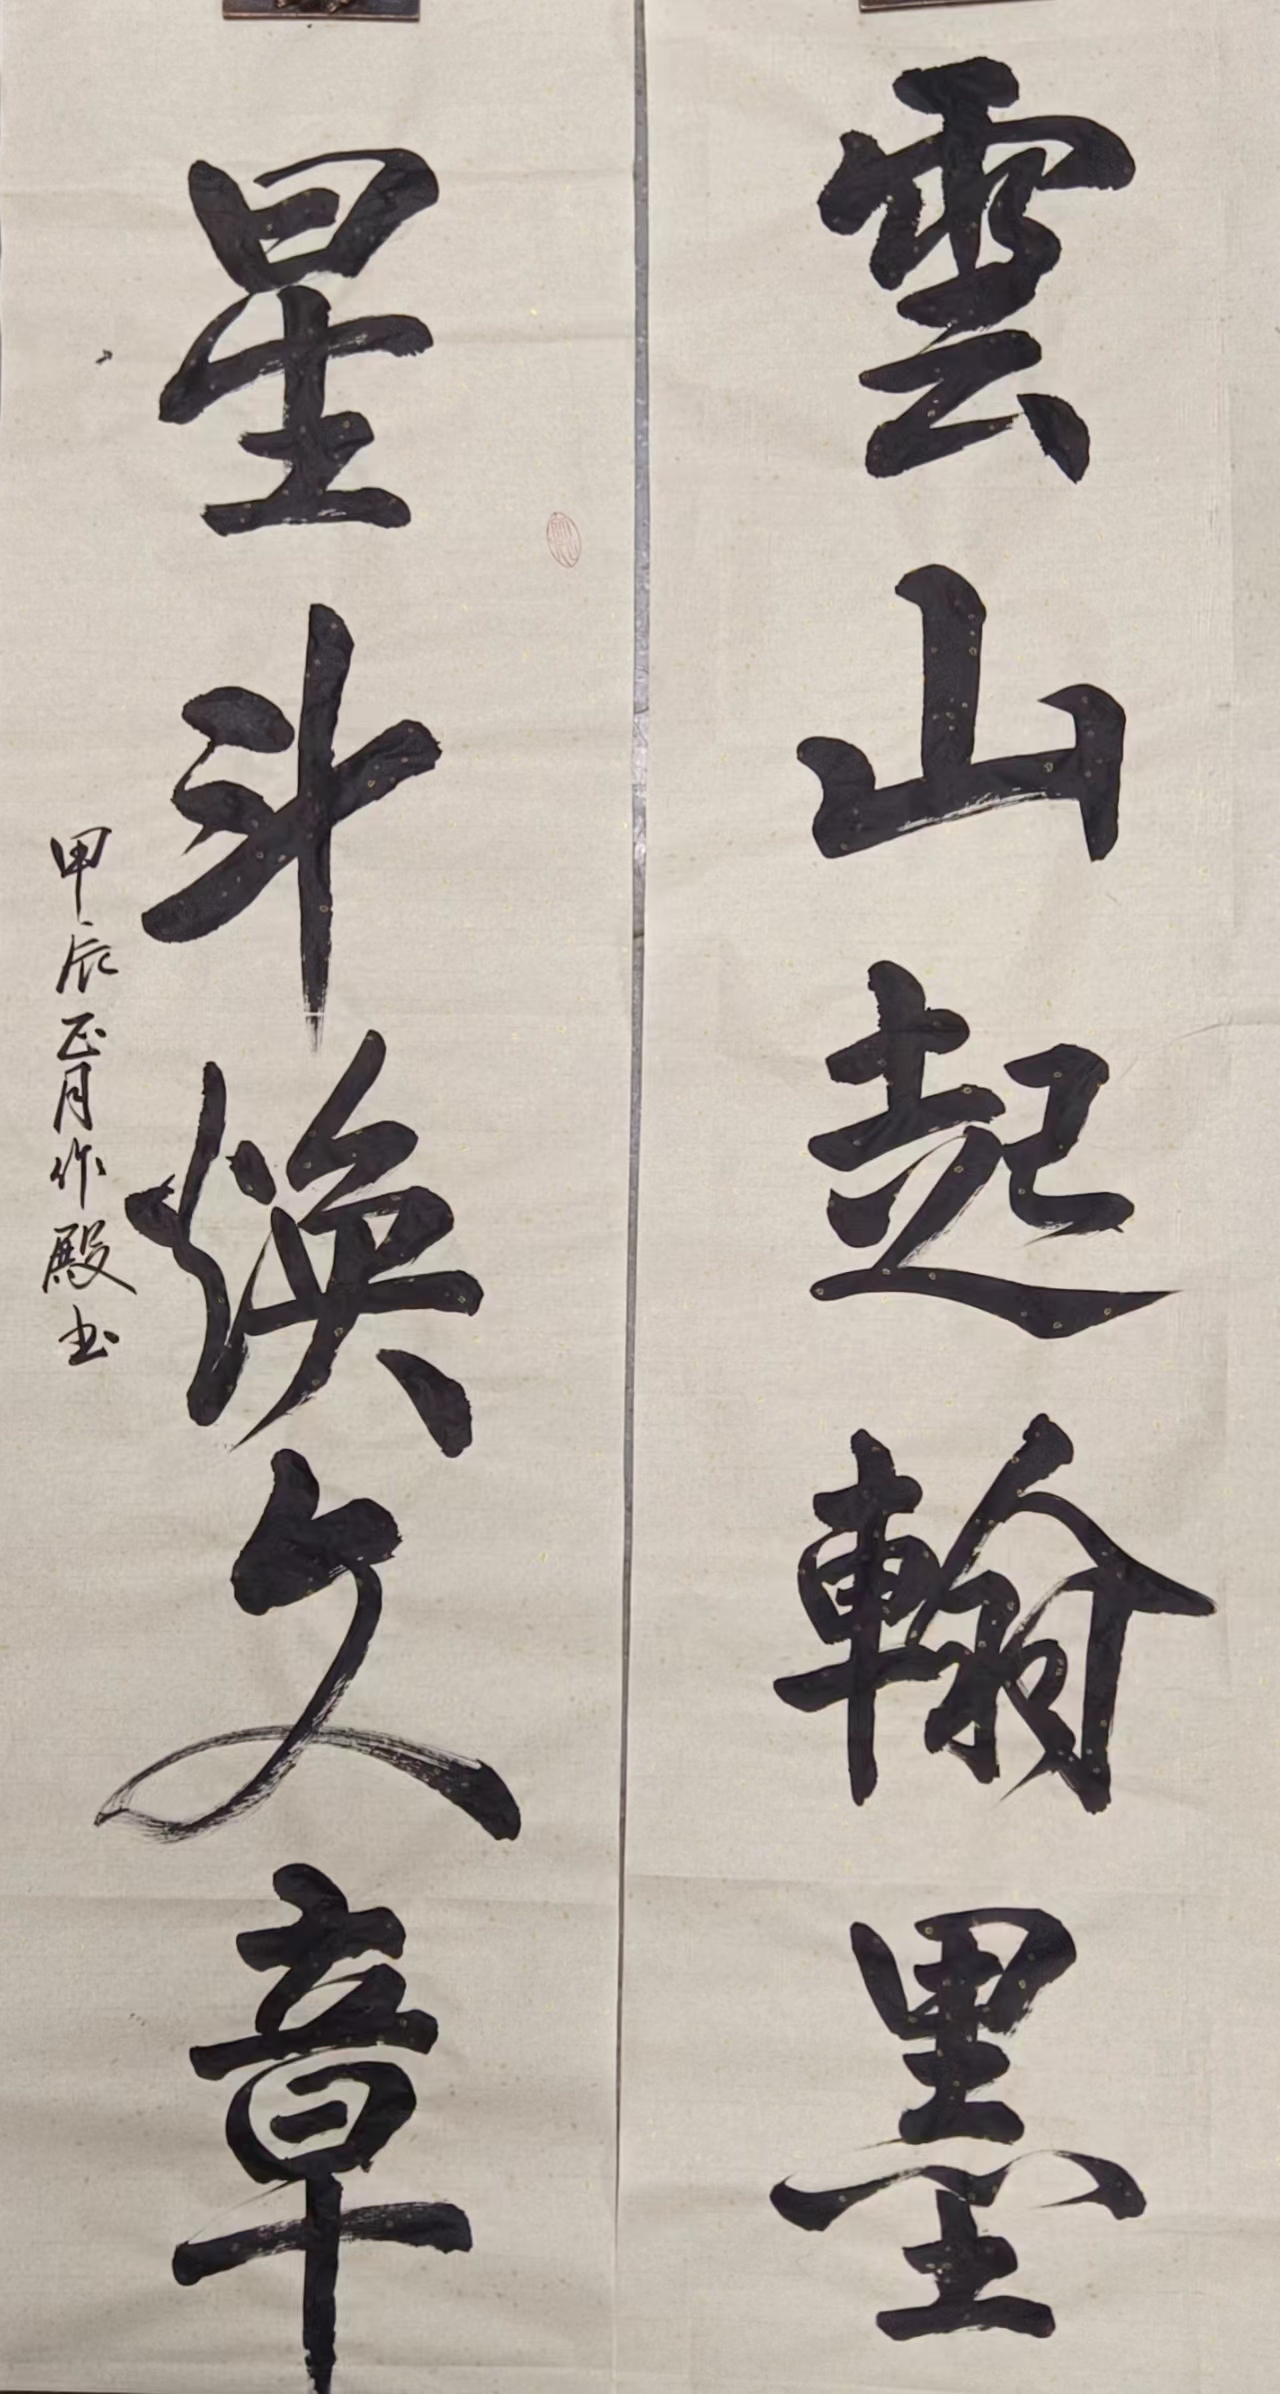 雲山起翰墨
星斗煥文章
甲辰正月作殿书